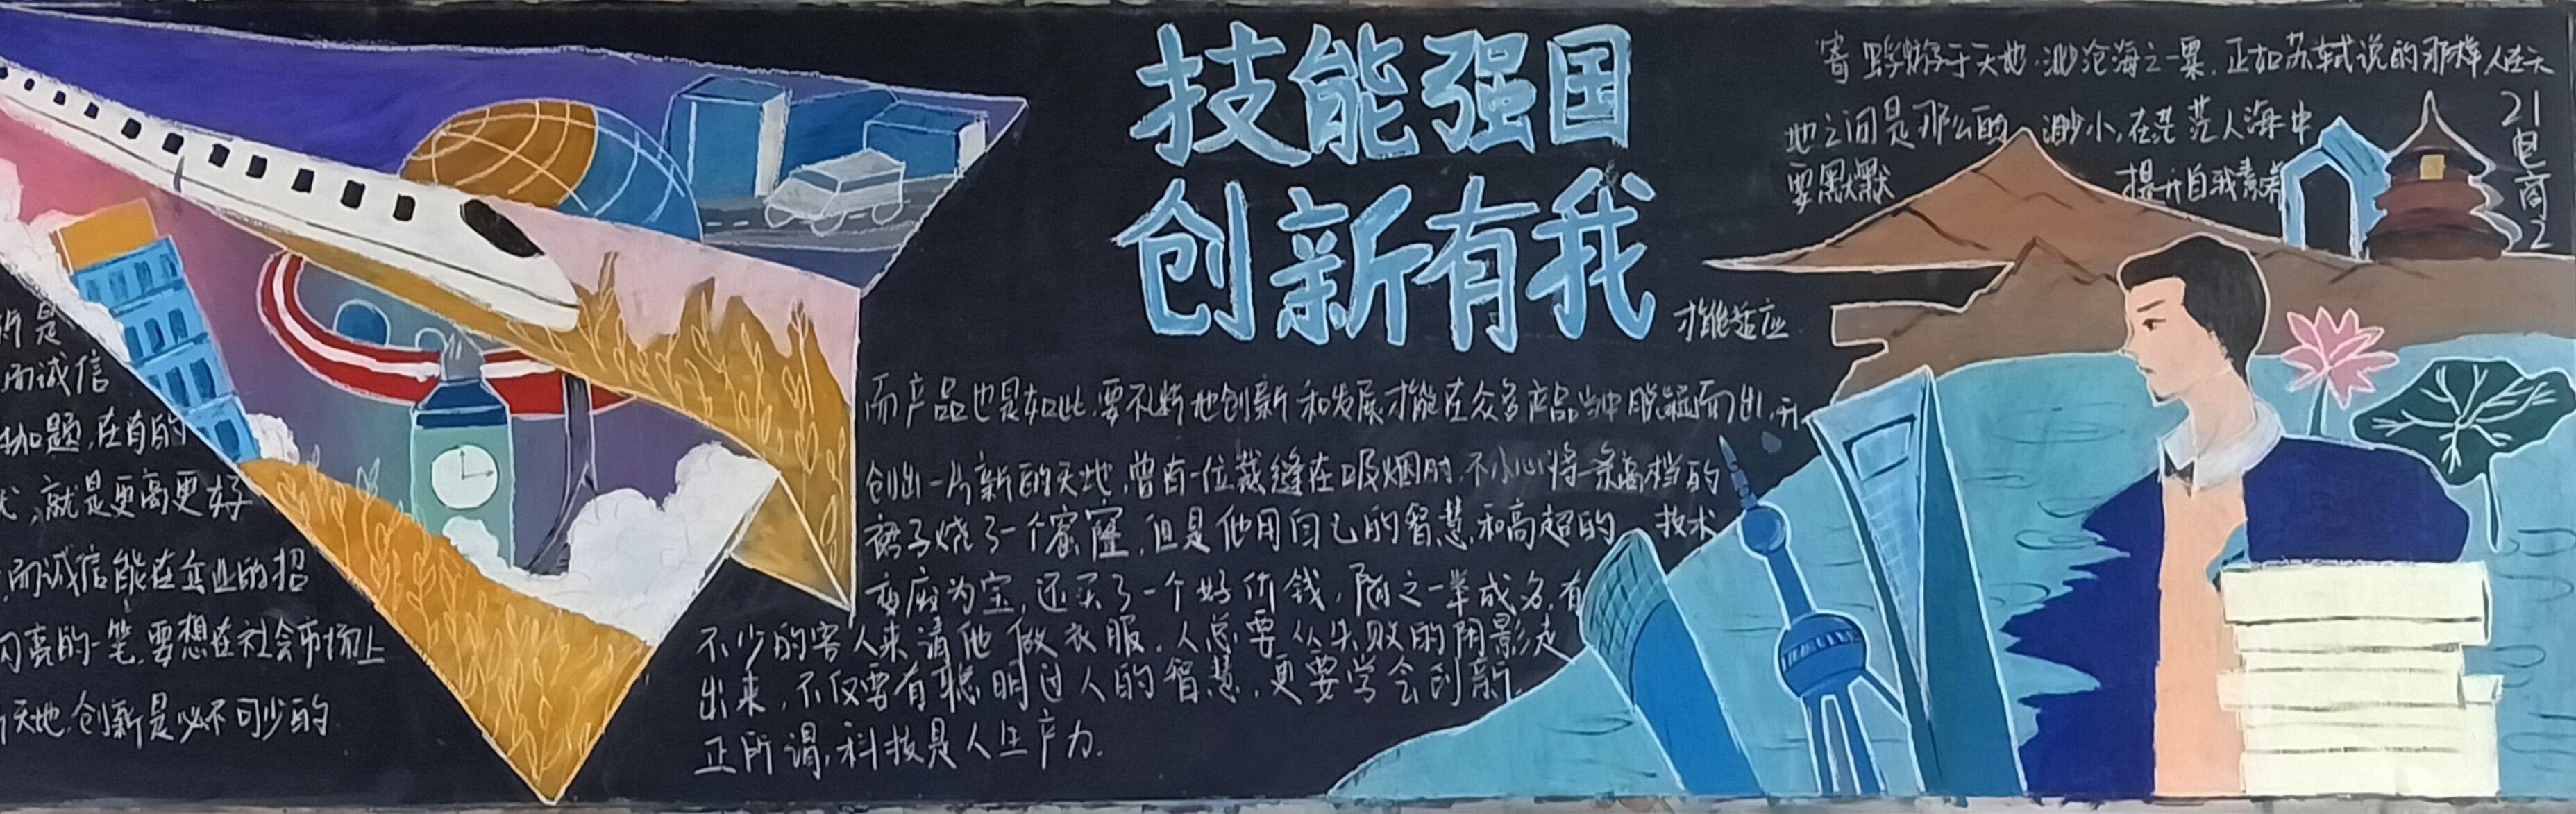 技能强国
创新有我
寄蜉蝣于天地,渺沧海之一粟.正如苏轼说的那样人在天
地之间是那么的渺小,在茫茫人海中
要默默 提升自我素养
才能适应
21电商2
而产品也是如此.要不断地创新和发展才能在众多产品当中脱颖而出,开
创出一片新的天地,曾有一位裁缝在吸烟时,不小心将一条高档的
裙子烧了一个窟窿,但是他用自己的智慧,和高超的 技术
变废为宝,还买了一个好价钱,随之一举成名,有
不少的客人来请他做衣服.人总要从失败的阴影走
出来,不仅要有聪明过人的智慧,更要学会创新.
正所谓,科技是人生产力.
新是
而诚信
加题,在有的
就是更高更好
而诚信能在企业的招
闪亮的一笔,要想在社会市场上
天地.创新是必不可少的